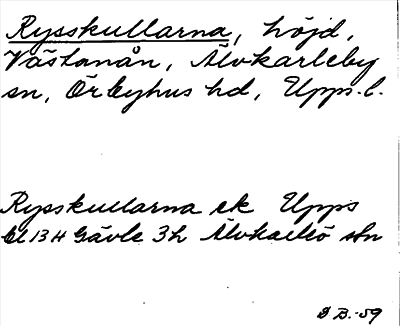 Rysskullarna, höjd,
Västanån, Älvkarleby
sn, Örbyhus hd, Upps. l.
Rysskullarna ek Upps
bl 13 H Gävle 3h Älvkarleö
DB.-59